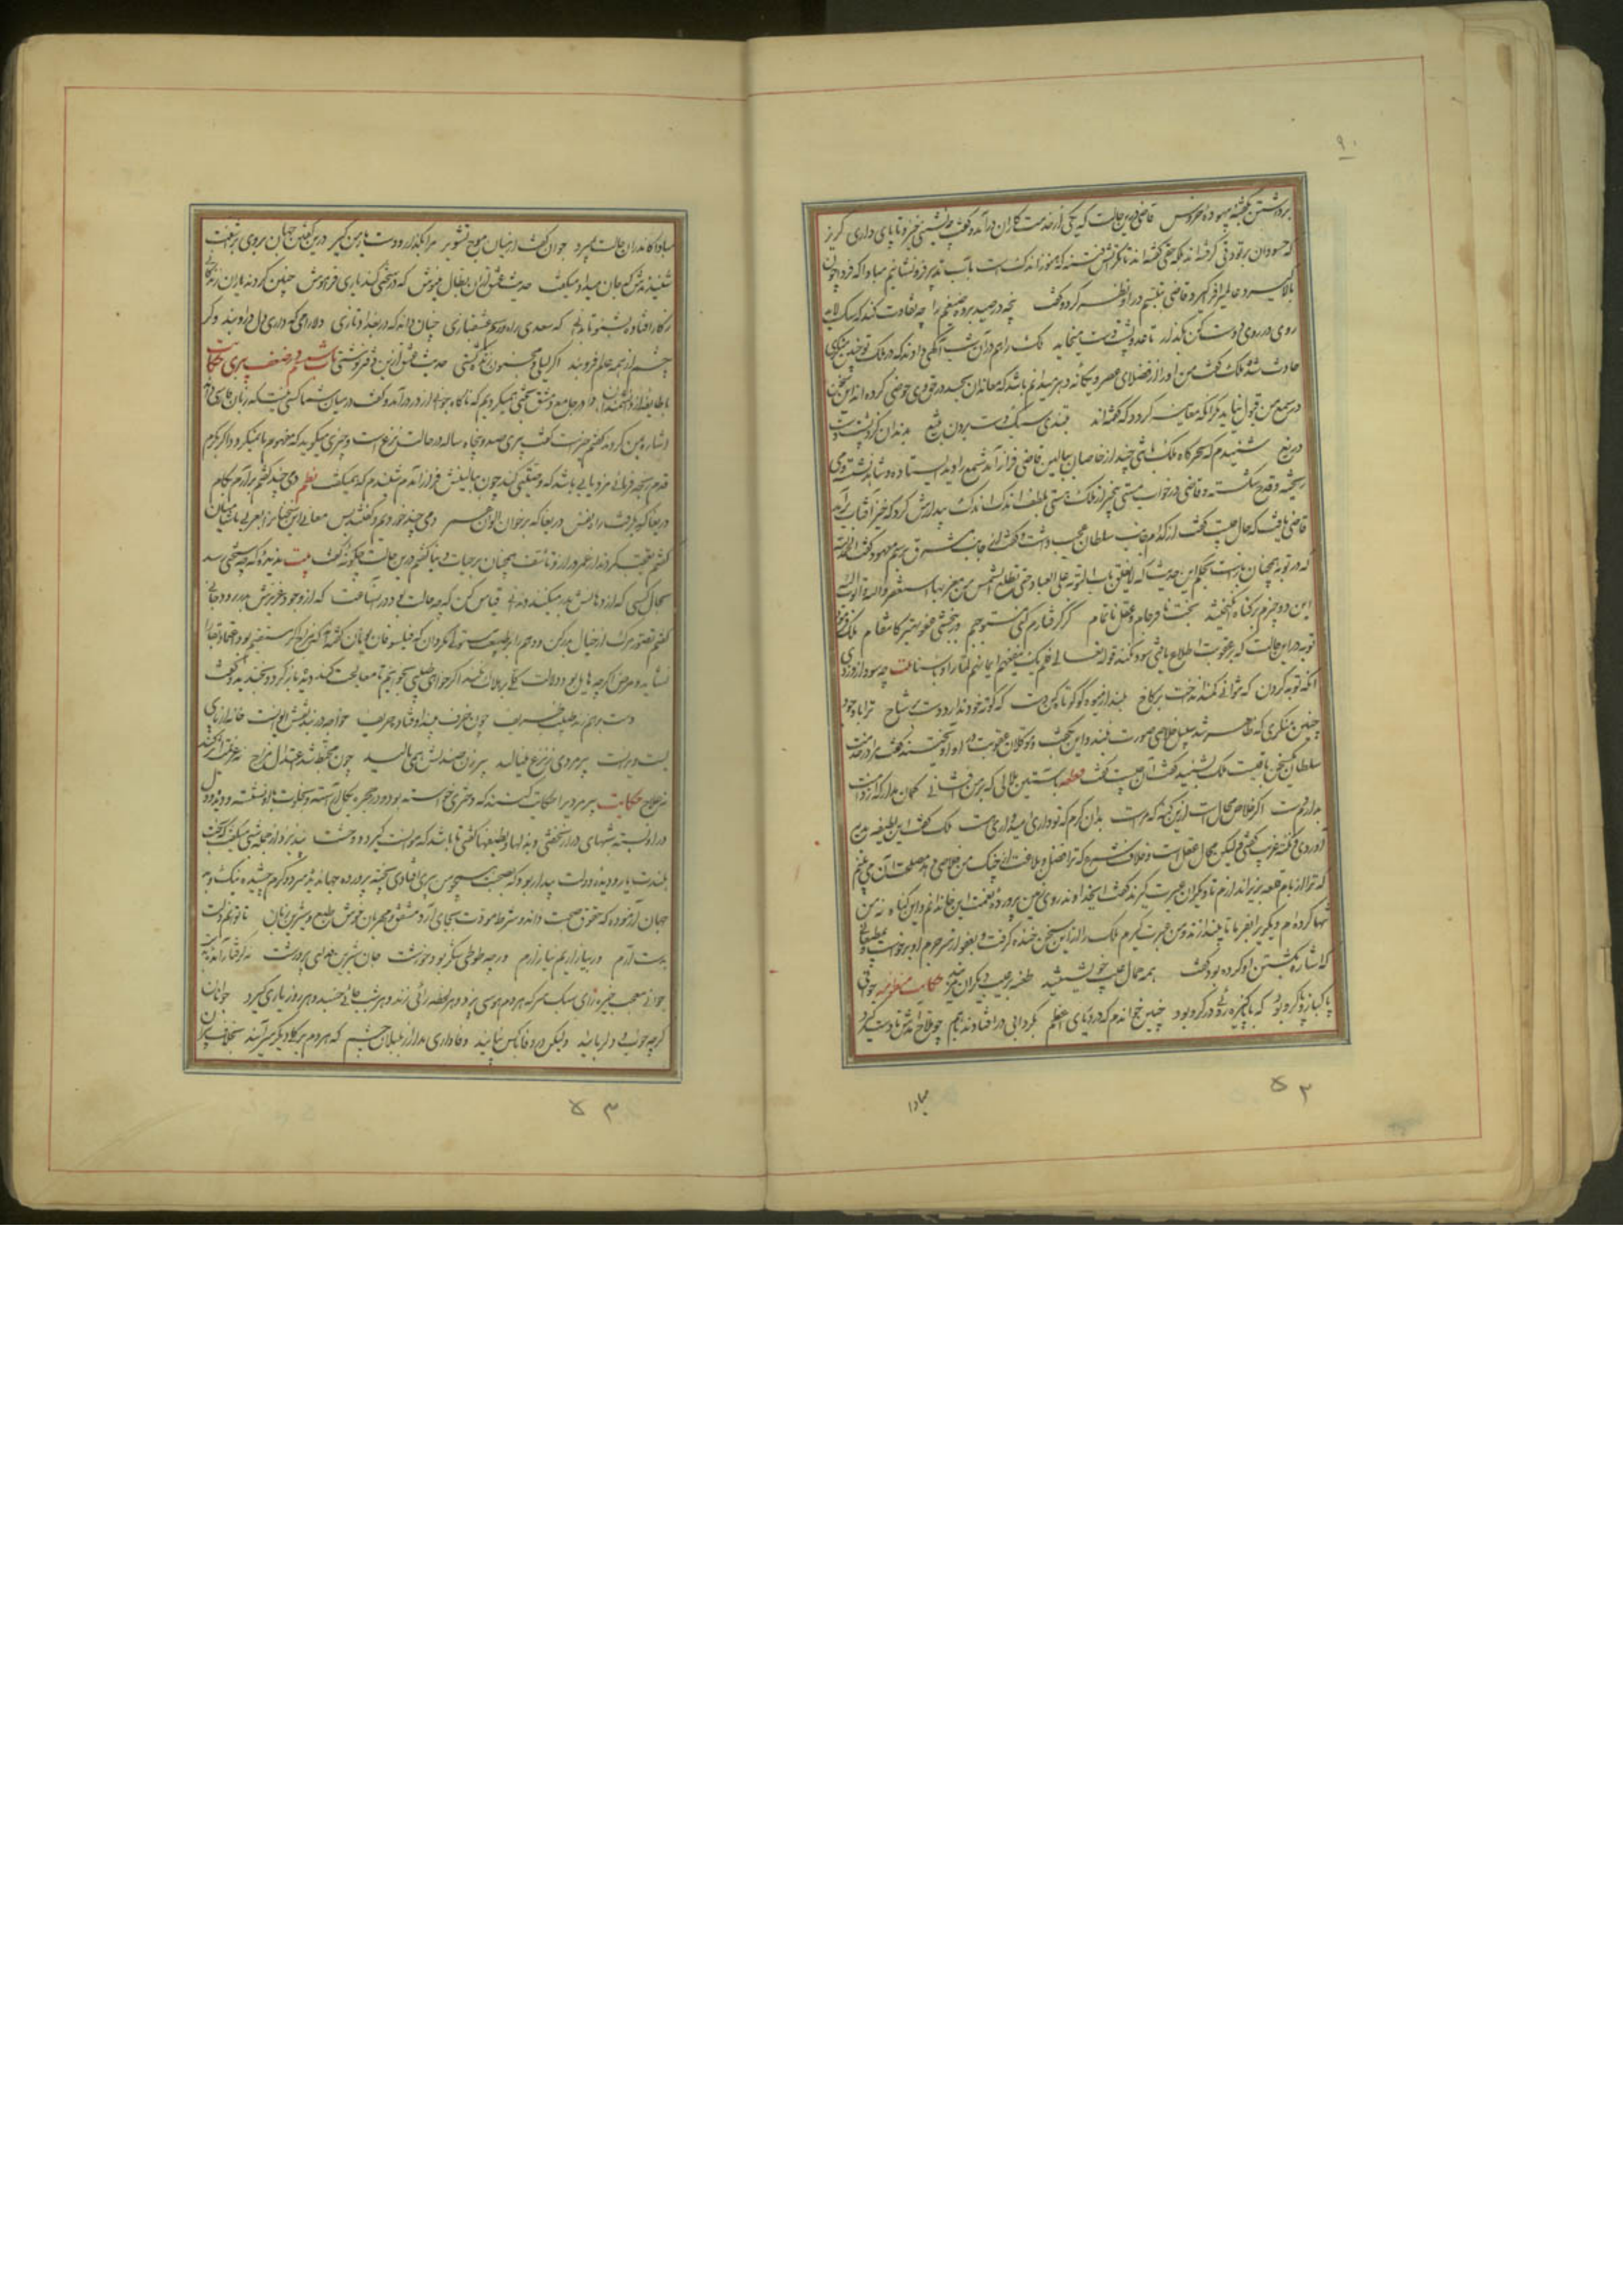 ۹۰
برداشتن بگفته بیهوده خروس قاضی درین حالت که یکی از خدمتکاران درآمد و گفت چه نشینی خیز و تا پای داری گریز
که حسودان بر تو دقی گرفته‌اند بلکه حقی گفته‌اند تا مگر آتش فتنه که هنوز اندکست بآب تدبیر فرو نشانیم مبادا که فردا چون
بالا گیرد عالمی را فرا گیرد قاضی بتبسم در او نظر کرد و گفت پنجه در صید برده ضیغم را چه تفاوت کند که سگ لاید
روی در روی دوست کن بگذار تا عدو پشت دست میخاید ملک را هم در آن شب آگهی دادند که در ملک تو چنین منکری
حادث شد ملک گفت من او را از فضلای عصر و یگانه دهر میدانم باشد که معاندان در حق وی خوضی کرده‌اند این سخن
در سمع من قبول نیاید مگر آنکه معاینه گردد که گفته‌اند بتندی سبک دست بردن بتیغ بدندان گزد پشت دست
دریغ شنیدم که سحرگاه ملک با تنی چند از خاصان ببالین قاضی فراز آمد شمع را دید ایستاده و شاهد نشسته و می
ریخته و قدح شکسته و قاضی در خواب مستی بیخبر از ملک هستی بلطف اندک اندک بیدارش کرد که خیز آفتاب برآمد
قاضی دریافت که حال چیست گفت از کدام جانب سلطان عجب داشت و گفت از جانب مشرق برسم معهود گفت الحمد لله
که در توبه همچنان بازست بحکم این حدیث که لا یغلق باب التوبة علی العباد حتی تطلع الشمس من مغربها استغفر الله و اتوب الیه
این دو چیزم بر گناه انگیختند بخت نافرجام و عقل ناتمام گر گرفتارم کنی مستوجبم ور ببخشی عفو بهتر کانتقام ملک گفتا
توبه در این حالت که بر عقوبت اطلاع یافتی سود نکند قوله تعالی فلم یک ینفعهم ایمانهم لما راوا باسنا بیت چه سود از دزدی
آنگه توبه کردن که نتوانی کمند انداخت بر کاخ بلند از میوه گو کوتاه کن دست که کوته خود ندارد دست بر شاخ ترا با وجود
چنین منکری که ظاهر شد سبیل خلاص صورت نبندد این بگفت و موکلان عقوبت در او آویختند گفت مرا در خدمت
سلطان یک سخن باقیست ملک بشنید گفت آن چیست گفت قطعه بآستین ملالی که بر من افشانی طمع مدار که از دامنت
بدارم دست اگر خلاص محالست ازین گنه که مراست بدان کرم که تو داری امیدواری هست ملک گفت این لطیفه بدیع
آوردی و نکته غریب گفتی ولیکن محال عقل است و خلاف شرع که ترا فضل و بلاغت از چنگ من خلاصی دهد مصلحت آن می‌بینم
که ترا از بام قلعه بزیر اندازم تا دیگران عبرت گیرند گفت ای خداوند روی زمین پرورده نعمت این خاندانم و این گناه نه من
تنها کرده‌ام دیگری را بفرما تا بیندازند و من عبرت گیرم ملک را از این سخن خنده گرفت و بعفو از سر جرم او برخاست و متعنتانی
که اشاره بکشتن او کرده بود گفت همه حمال عیب خویشتنید طعنه بر عیب دیگران مزنید حکایت منظومه جوانی
پاکباز و پاکرو بود که با پاکیزه رویی در گرو بود چنین خواندم که در دریای اعظم بگردابی در افتادند باهم چو ملاح آمدش تا دست گیرد
مبادا
مبادا کاندران حالت بمیرد جوان گفت از میان موج تشویر مرا بگذار و دست یار من گیر درین گفتن جهان بر وی برآشفت
شنیدندش که جان میداد و میگفت حدیث عشق از آن بطال منیوش که در سختی کند یاری فراموش چنین کردند یاران زندگانی
ز کار افتاده بشنو تا بدانی که سعدی راه و رسم عشقبازی چنان داند که در بغداد تازی دلارامی که داری دل در او بند دگر
چشم از همه عالم فرو بند اگر لیلی و مجنون زنده گشتی حدیث عشق ازین دفتر نوشتی باب ششم در ضعف پیری حکایت
با طایفه از دانشمندان در جامع دمشق بحثی همیکردیم که ناگاه جوانی از در درآمد و گفت در میان شما کسی هست که زبان فارسی داند
اشاره بمن کردند گفتم خیرست گفت پیری صد و پنجاه ساله در حالت نزع است و چیزی میگوید که مفهوم ما نمیگردد اگر بکرم
قدم رنجه فرمائی مزد یابی باشد که وصیتی کند چون ببالینش فراز آمدم شنیدم که میگفت نظم دمی چند گفتم برآرم بکام
دریغا که بگرفت راه نفس دریغا که بر خوان الوان عمر دمی چند خوردیم و گفتند بس معانی این سخن را بعربی با شامیان
گفتم تعجب کردند از عمر دراز و تأسف همچنان بر حیات دنیا گفتم درین حالت چگونه گفت بیت ندیده که چه سختی رسد
بحال کسی که از دهانش بدر میکنند دندانی قیاس کن که چه حالت بود در آن ساعت که از وجود عزیزش بدر رود جانی
گفتم تصور مرگ از خیال بدر کن و وهم را بر طبیعت مستولی مگردان که فیلسوفان یونان گفته‌اند مزاج اگر مستقیم بود اعتماد بقا را
نشاید و مرض اگر چه هایل بود دلالت کلی بر هلاک نکند اگر خواهی طبیبی بخوانیم تا معالجت کند دیده باز کرد و بخندید و گفت
دست بر هم زند طبیب ظریف چون خرف بیند اوفتاده حریف خواجه در بند نقش ایوانست خانه از پای
بست ویرانست پیرمردی ز نزع مینالید پیر زن صندلش همی مالید چون مخبط شد اعتدال مزاج نه عزیمت اثر کند
نه علاج حکایت پیرمردی را حکایت کنند که دختری خواسته بود و حجره بگل آراسته و بخلوت با او نشسته و دیده و دل
در او بسته شبهای دراز نخفتی و بذلها و لطیفها گفتی تا باشد که موانست گیرد و وحشت نپذیرد از جمله شبی میگفت که بخت
بلندت یار بود و دیده دولت بیدار بود که بصحبت پیری افتادی پخته پرورده جهاندیده سرد و گرم چشیده نیک و بد
جهان آزموده که حقوق صحبت داند و شرط مودت بجای آرد مشفق و مهربان خوش طبع و شیرین زبان تا توانم دلت
بدست آرم ور بیازاریم نیازارم ور چه طوطی شکر بود خورشت جان شیرین فدای پرورشت نه گرفتار آمدی بدست
جوانی معجب خیره رای سبک سر که هر دم هوسی پزد و هر لحظه رائی زند و هر شب جائی خسبد و هر روز یاری گیرد جوانان
گر چه خوب و دلربایند ولیکن در وفا با کس نپایند وفاداری مدار از بلبلان چشم که هر دم بر گلی دیگر سرایند بخلاف پیران